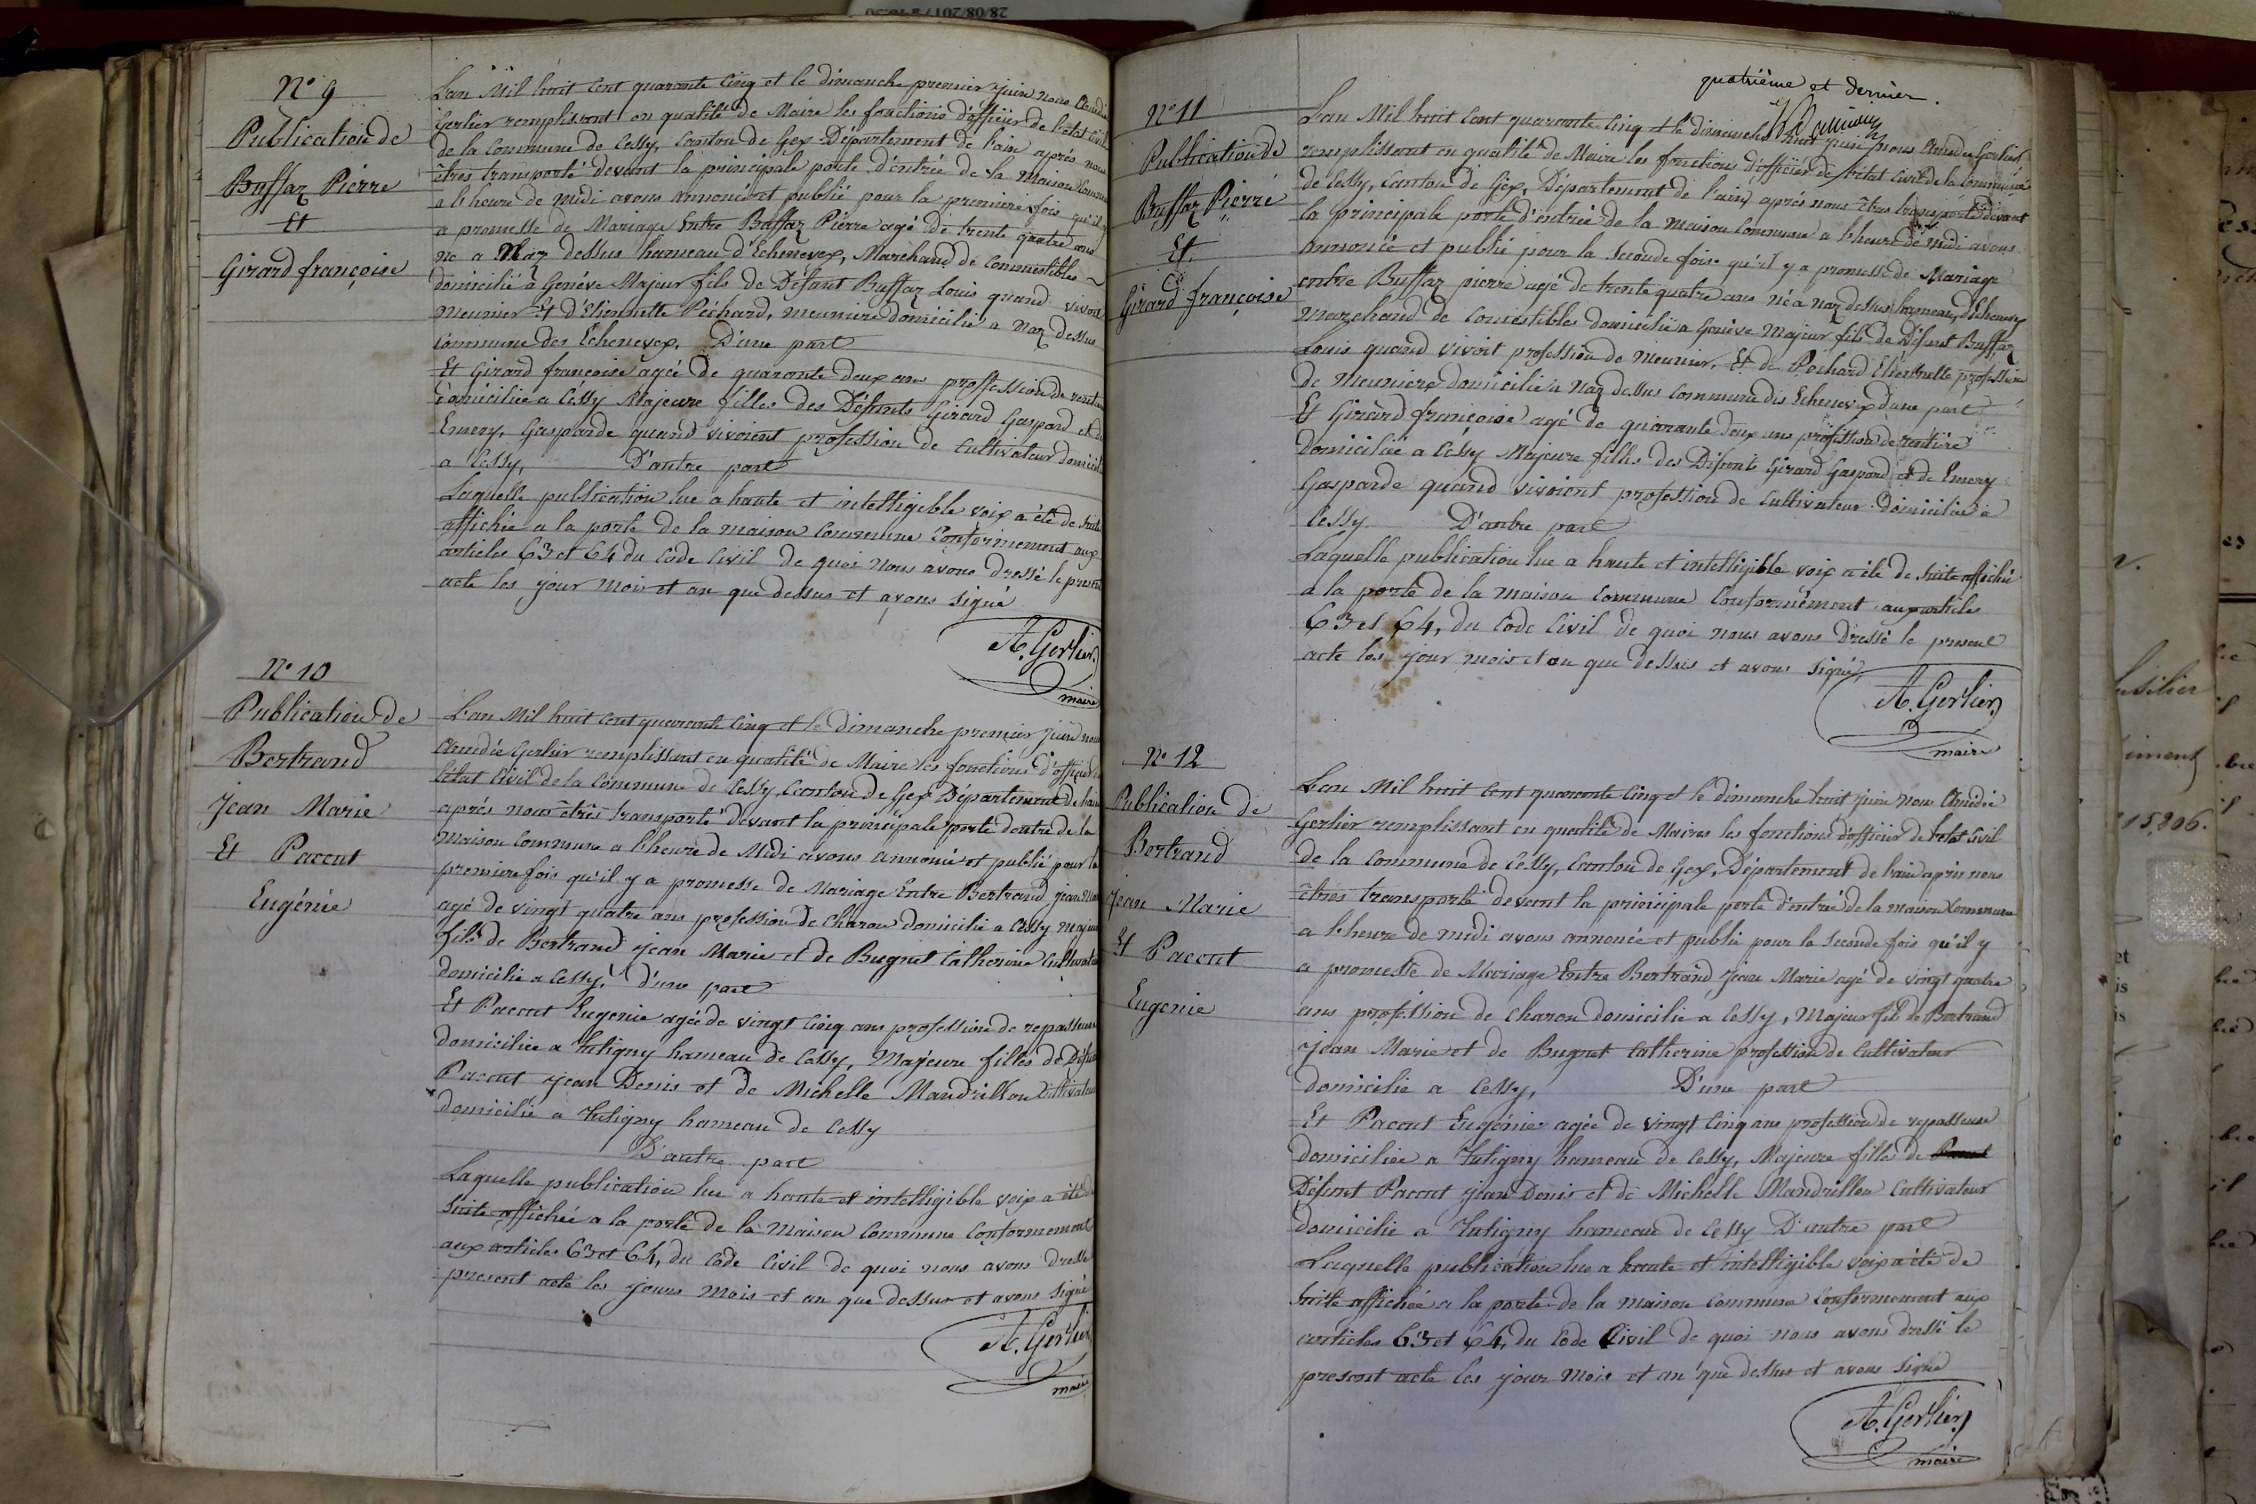 N° 9
Publication de
Buffaz Pierre
Et
Girard françoise
L'an Mil huit Cent quarante Cinq et le dimanche premier juin nous Amédée
Gerlier remplissant en qualité de Maire les fonctions d'officier de l'état Civil
de la Commune de Cessy, Canton de Gex Département de l'ain après nous
êtres transporté devant la principale porte d'entrée de la Maison Commune
a lheure de midi avons annoncé et publié pour la premiere fois qu'il y
a promesse de Mariage Entre Buffaz Pierre agé de trente quatre ans
né a Naz dessus hameau d'Echenevex, Marchand de Commestibles
domicilié à Genève Majeur fils de Défunt Buffaz Louis quand vivoit
meunier Et d'Etiennette Péchard, meunière domicilié a Naz dessus
commune des Echenevex. D'une part
Et Girard françoise agée de quarante deux ans proffession de rentière
domiciliée a Céssy Majeure filles des Défunts Girard Gaspard et de
Emery, Gasparde quand vivoient profession de Cultivateur domicilié
a Cessy, D'autre part
Laquelle publication lue a haute et intelligible voix a été de suite
affichée a la porte de la maison commune Conformément aux
articles 63 et 64 du Code Civil de quoi Nous avons dressé le present
acte les jour mois et an que dessus et avons signé
A. Gerlier
maire
N° 10
Publication de
Bertrand
Jean Marie
Et Paccut
Eugénie
L'an Mil huit Cent quarante Cinq et le dimanche premier juin nous
Amédée Gerlier remplissant en qualité de Maire les fonctions d'officier de
l'état Civil de la Commune de Cessy Canton de Gex Département de l'ain
après nous êtres transporté devant la principale porte dentre de la
Maison Commune a lheure de Midi avons annoncé et publié pour la
premiere fois qu'il y a promesse de Mariage Entre Bertrand jean Marie
agé de vingt quatre ans profession de Charon domicilié a Cessy majeur
fils de Bertrand jean Marie et de Bugnet Catherine Cultivateur
domicilié a Cessy, d'une part
Et Paccut Eugenie agée de vingt Cinq ans profession de repasseuse
domiciliee a Tutigny hameau de Cessy, Majeure filles de Défunt
Paccut jean Denis et de Michelle Mandrillon Cultivateur
domicilié a Tutigny hameau de Cessy
D'autre part
Laquelle publication lue a haute et intelligible voix a été de
suite affichée a la porte de la Maison Commune Conformement
aux articles 63 et 64, du Code Civil de quoi nous avons dressé
present acte les jours Mois et an que dessus et avons signé
A. Gerlier
maire
quatrième et dernier.
N° 11
Publication de
Buffaz Pierre
Et
Girard françoise
L'an Mil huit Cent quarante Cinq et le dimanche huit juin nous Amédée Gerlier
remplissant en qualité de Maire les fonctions d'officier de l'état Civil de la Commune
de Cessy, Canton de Gex, Département de l'ain, après nous êtres transporté devant
la principale porte d'entrée de la Maison Commune a lheure de midi avons
annoncé et publié pour la seconde fois qu'il y a promesse de Mariage
entre Buffaz pierre agé de trente quatre ans né a naz dessus hameau d'Echenevex
Marchand de Comestibles domicilié a Genève Majeur fils de Défunt Buffaz
Louis quand vivoit profession de meunier, Et de Pechard Etiennette profession
de Meuniere domicilié a Naz dessus Commune des Echenevex d'une part
Et Girard françoise agé de quarante deux ans profession de rentière
domiciliée a Céssy Majeure filles des Défunts Girard Gaspard et de Emery
Gasparde quand vivoient profession de Cultivateur Domicilié a
Cessy. D'autre part
Laquelle publication lue a haute et intelligible voix a été de suite affiché
a la porte de la maison Commune Conformément aux articles
63 et 64, du Code Civil de quoi nous avons dressé le present
acte les jour mois et an que dessus et avons signé
A. Gerlier
maire
N° 12
Publication de
Bertrand
jean Marie
Et Paccut
Eugenie
L'an Mil huit Cent quarante Cinq et le dimanche huit juin nous Amédée
Gerlier remplissant en qualité de Maires les fonctions d'officier de l'état Civil
de la Commune de Cessy, Canton de Gex, Département de l'ain après nous
êtres transporté devant la principale porte d'entrée de la maison Commune
a lheure de midi avons annoncée et publié pour la seconde fois qu'il y
a promesse de Mariage Entre Bertrand jean Marie agé de vingt quatre
ans profession de charon domicilié a Cessy, Majeur fils de Bertrand
jean Marie et de Bugnet Catherine profession de Cultivateur
domicilié a Cessy, D'une part
Et Paccut Eugénie agée de vingt Cinq ans profession de repasseuse
domiciliée a Tutigny hameau de Cessy, Majeure fille de
Défunt Paccut jean Denis et de Michelle Mandrillon Cultivateur
domicilié a Tutigny hameau de Cessy D'autre part
Laquelle publication lue a haute et intelligible voix a été de
suite affichée a la porte de la maison Commune Conformement aux
articles 63 et 64, du Code Civil de quoi nous avons dressé le
present acte les jour Mois et an que dessus et avons signé
A. Gerlier
maire